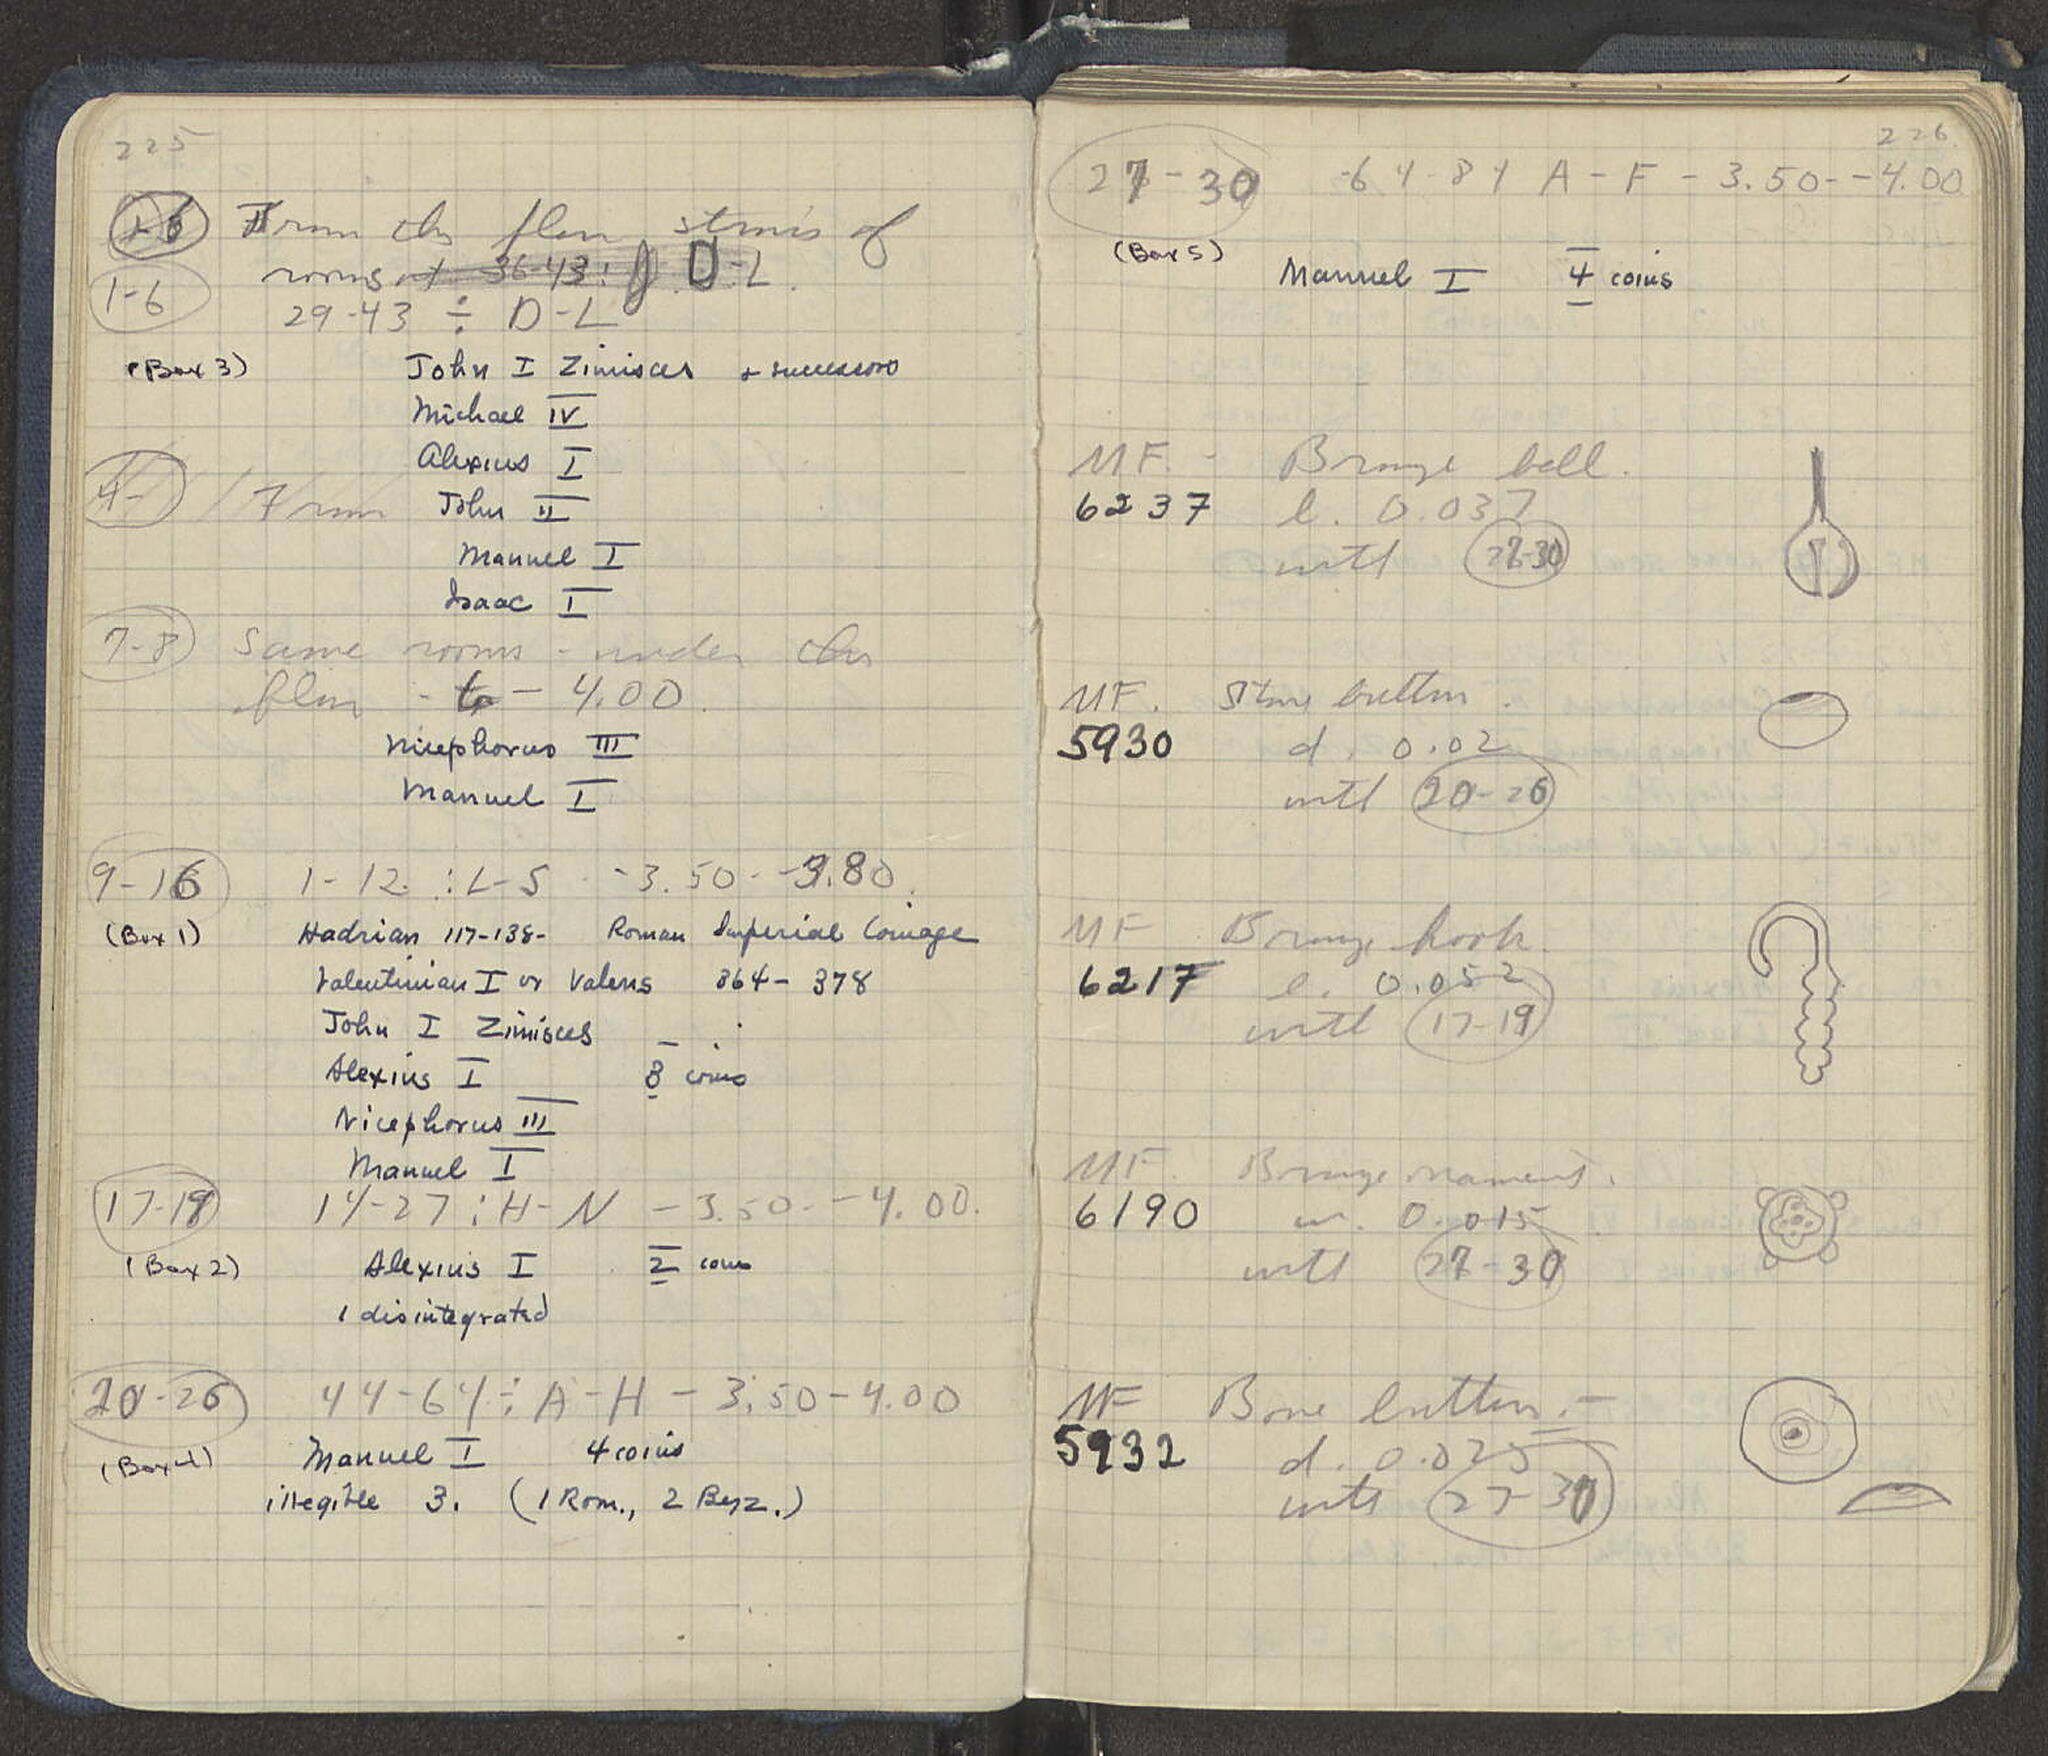 225
1-6 From the floor strosis of
rooms at 36-43 : D-L.
1-6
29-43 ÷ D-L
(Box 3) John I Zimisces + successors
Michael IV
Alexius I
4- From
John II
Manuel I
Isaac I
7-8 Same rooms - under the
floor - to - 4.00.
Nicephorus III
Manuel I
9-16 1-12 : L-S -3.50 - -3.80.
(Box 1) Hadrian 117-138- Roman Imperial Coinage
Valentinian I or Valens 364- 378
John I Zimisces
Alexius I 3 coins
Nicephorus III
Manuel I
17-19 14-27 : H-N -3.50 - -4.00.
(Box 2) Alexius I 2 coins
1 disintegrated
20-26 44-64 ÷ A-H - 3.50-4.00
(Box 4) Manuel I 4 coins
illegible 3. (1 Rom., 2 Byz.)
226
27-30 64-84 A-F-3.50--4.00
(Box 5) Manuel I 4 coins
MF. - Bronze bell.
6237 l. 0.037
with 27-30
MF. Stone button.
5930 d. 0.02
with 20-26
MF Bronze hook.
6217 l. 0.052
with 17-19
MF. Bronze ornament.
6190 w. 0.015
with 27-30
MF Bone button. -
5932 d. 0.025
with 27-30